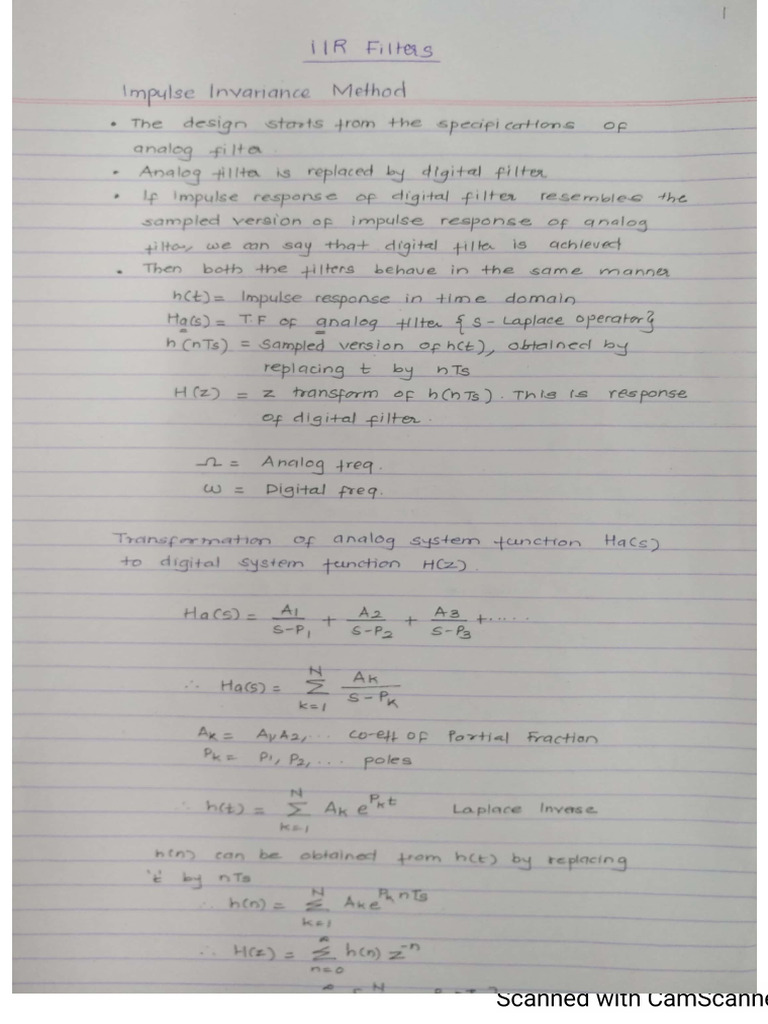 1
IIR Filters
Impulse Invariance Method
• The design starts from the specifications of
analog filter.
• Analog fillter is replaced by digital filter
• If impulse response of digital filter resembles the
sampled version of impulse response of analog
filter, we can say that digital filter is achieved
• Then both the filters behave in the same manner
h(t) = Impulse response in time domain
Ha(s) = T.F of analog filter { s - Laplace operator}
h(nTs) = Sampled version of h(t), obtained by
replacing t by nTs
H(z) = z transform of h(nTs). This is response
of digital filter.
Ω = Analog freq.
ω = Digital freq.
Transformation of analog system function Ha(s)
to digital system function H(z).
Ha(s) = A1/(s-P1) + A2/(s-P2) + A3/(s-P3) + .....
∴ Ha(s) = N Σ k=1 Ak/(s-Pk)
Ak = A1, A2, ... co-eff of Partial Fraction
Pk = P1, P2, ... poles
∴ h(t) = N Σ k=1 Ak e^Pkt Laplace Inverse
h(n) can be obtained from h(t) by replacing
't' by nTs
∴ h(n) = N Σ k=1 Ak e^Pk nTs
∴ H(z) = Σ n=0 h(n) z^-n
Scanned with CamScanne